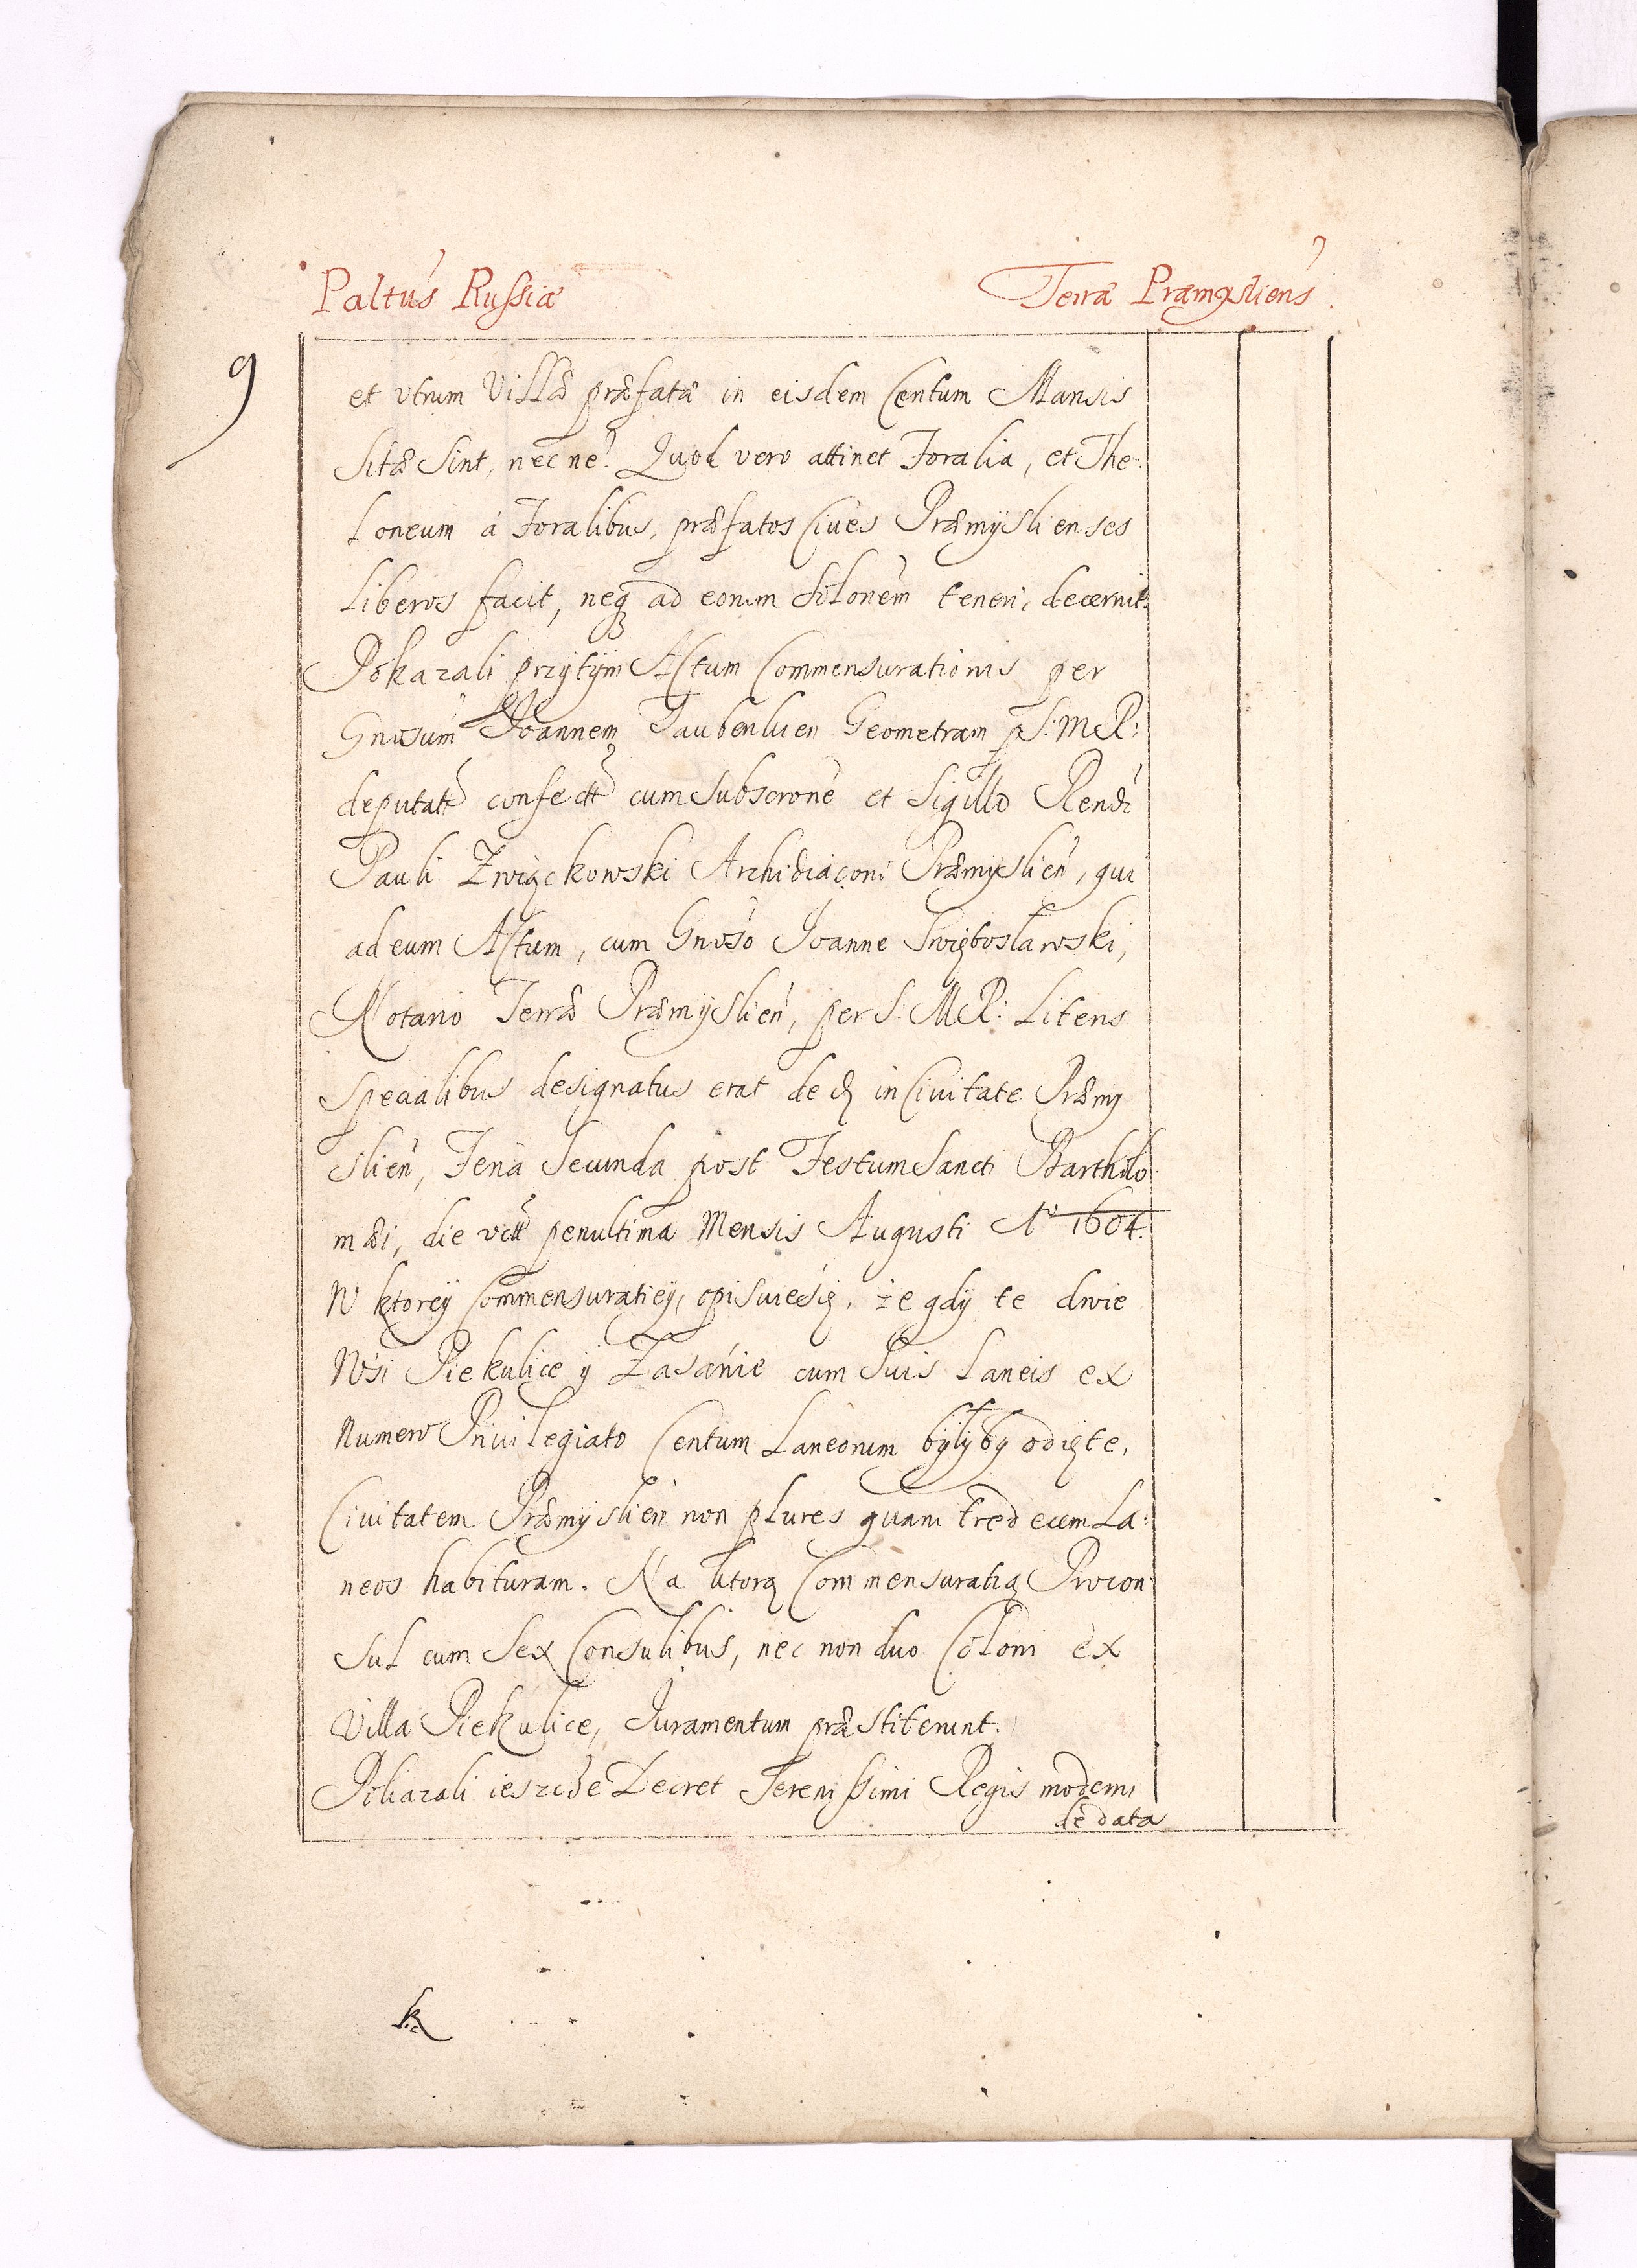 Paltus Russiæ
Terræ Præmysliens
9
et vtrum Villæ præfatæ in eisdem Centum Mansis
Sitæ Sint, nec ne? Quod vero attinet Foralia, et The-
loneum á Foralibus, præfatos Ciues Præmyslienses
Liberos facit, neq ad eorum Solonem teneri, decernit.
Pokazali przytÿm Actum Commensurationis per
Gnrosum Joannem Taubenluen Geometram p S: M R:
deputatu confectu cum Subscrone et Sigillo Rendi
Pauli Zwiąckowski Archidiaconi Præmyslien, qui
ad eum Actum, cum Gnroso Joanne Swiętosławski,
Notario Terræ Præmÿslien, per S: M R: Literis
Specialibus designatus erat de in Ciuitate Præmy
slien, Feria Secunda post Festum Sancti Bartholo
mæi, die penultima Mensis Augusti Ao 1604.
W ktoreÿ Commensuratieÿ, opisuie się, że gdÿ te dwie
Wśi Piekulice ÿ Zasánie cum Suis Laneis ex
Numero Priuilegiato Centum Laneorum bÿłÿ by odięte,
Ciuitatem Præmÿslien non plures quam tredecem La-
neos habituram. Na ktorą Commensuratią Procon-
Sul cum Sex Consulibus, nec non duo Coloni ex
Villa Piekulice, Iuramentum præstiterunt.
Pokazali ieszcze Decret Serenissimi Regis moderni
de data